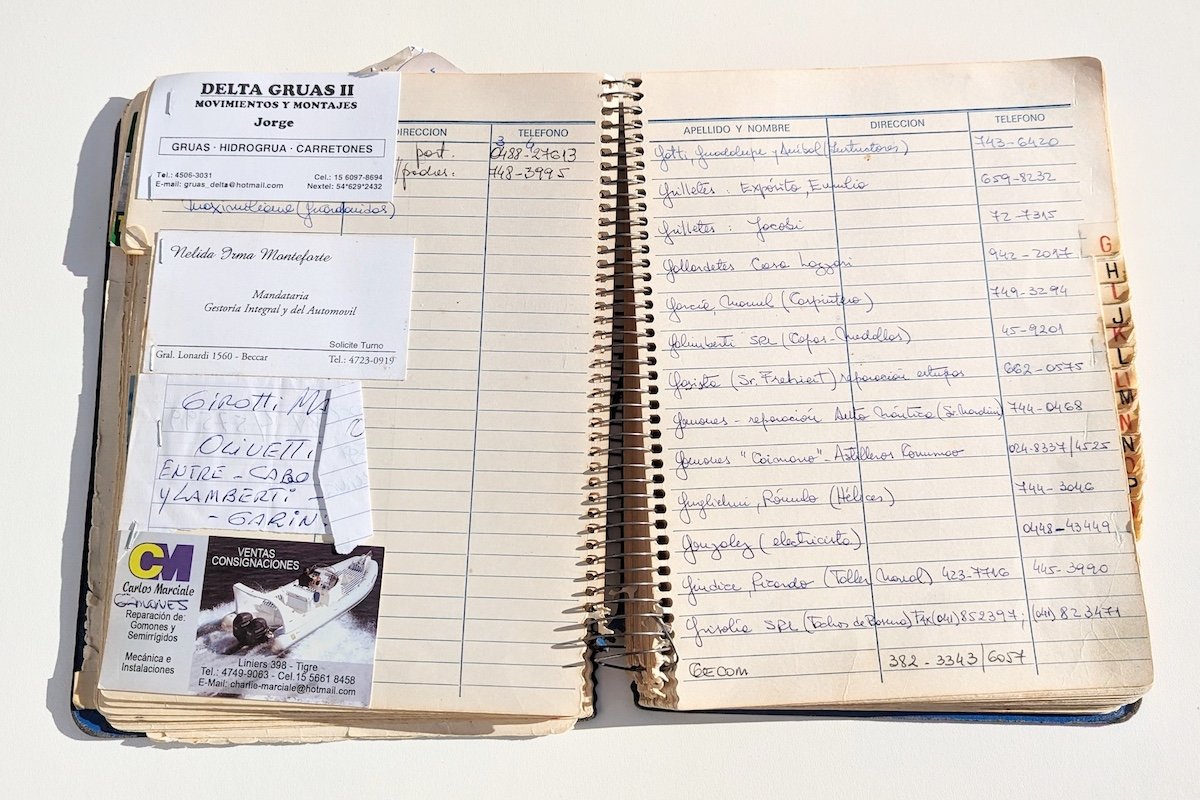 DELTA GRUAS II
MOVIMIENTOS Y MONTAJES
Jorge
GRUAS · HIDROGRUA · CARRETONES
Tel.: 4506-3031
Cel.: 15 6097-8694
E-mail: gruas_delta@hotmail.com
Nextel: 54*629*2432
DIRECCION TELEFONO
part. 0488-27613
padres: 748-3995
Maximiliano (Guardavidas)
Nelida Irma Monteforte
Mandataria
Gestoría Integral y del Automovil
Solicite Turno
Gral. Lonardi 1560 - Beccar
Tel.: 4723-0919
GIROTTI
OLIVETTI
ENTRE - CABO
Y LAMBERTI -
- GARIN
CM
Carlos Marciale
GOMONES
Reparación de:
Gomones y
Semirrígidos
Mecánica e
Instalaciones
VENTAS
CONSIGNACIONES
Liniers 398 - Tigre
Tel.: 4749-9063 - Cel.15 5661 8458
E-Mail: charlie-marciale@hotmail.com
APELLIDO Y NOMBRE DIRECCION TELEFONO
Gotti, Guadalupe y Anibal 743-6420
Grilletes: Expósito, Emilio 659-8232
Grilletes: Jacobi 72-7315
Gallardetes Casa Lazzari 942-2097
García, Manuel (Carpintero) 749-3294
Galimberti SRL (Copas-Medallas) 45-9201
Gasista (Sr. ) reparación estufas 662-0575
Gomones - reparación Delta Náutica 744-0468
Gomones "Caimano" - Astilleros 024-8337/4525
Guglielmi, Rómulo (Hélices) 744-3046
Gonzalez (electricista) 0448-43449
Giudice, Ricardo (Taller Naval) 423-7746 445-3990
Grisolía SRL Fax (041) 852397, (041) 823471
GECOM 382-3343/6057
G
H
I
J
K
L
M
N